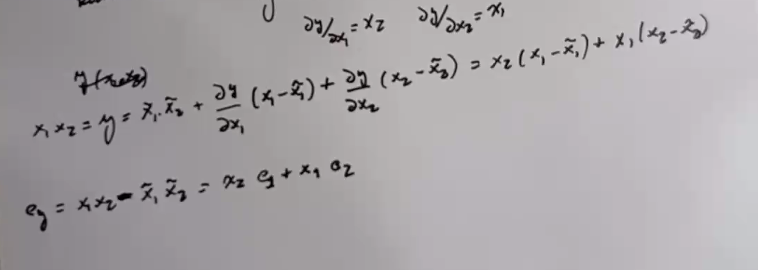 ∂y/∂x₁ = x₂ ∂y/∂x₂ = x₁
x₁x₂ = y = x̃₁.x̃₂ + ∂y/∂x₁ (x₁-x̃₁) + ∂y/∂x₂ (x₂-x̃₂) = x₂(x₁-x̃₁) + x₁(x₂-x̃₂)
e_y = x₁x₂ - x̃₁x̃₂ = x₂ e₁ + x₁ e₂